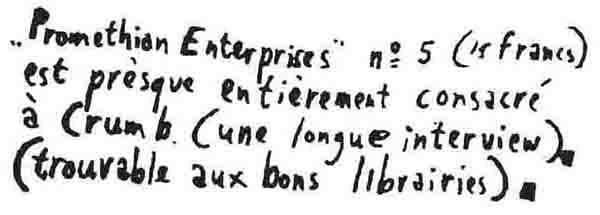 „Promethian Enterprises" nº 5 (15 francs)
est prèsque entièrement consacré
à Crumb. (une longue interview).
(trouvable aux bons librairies).